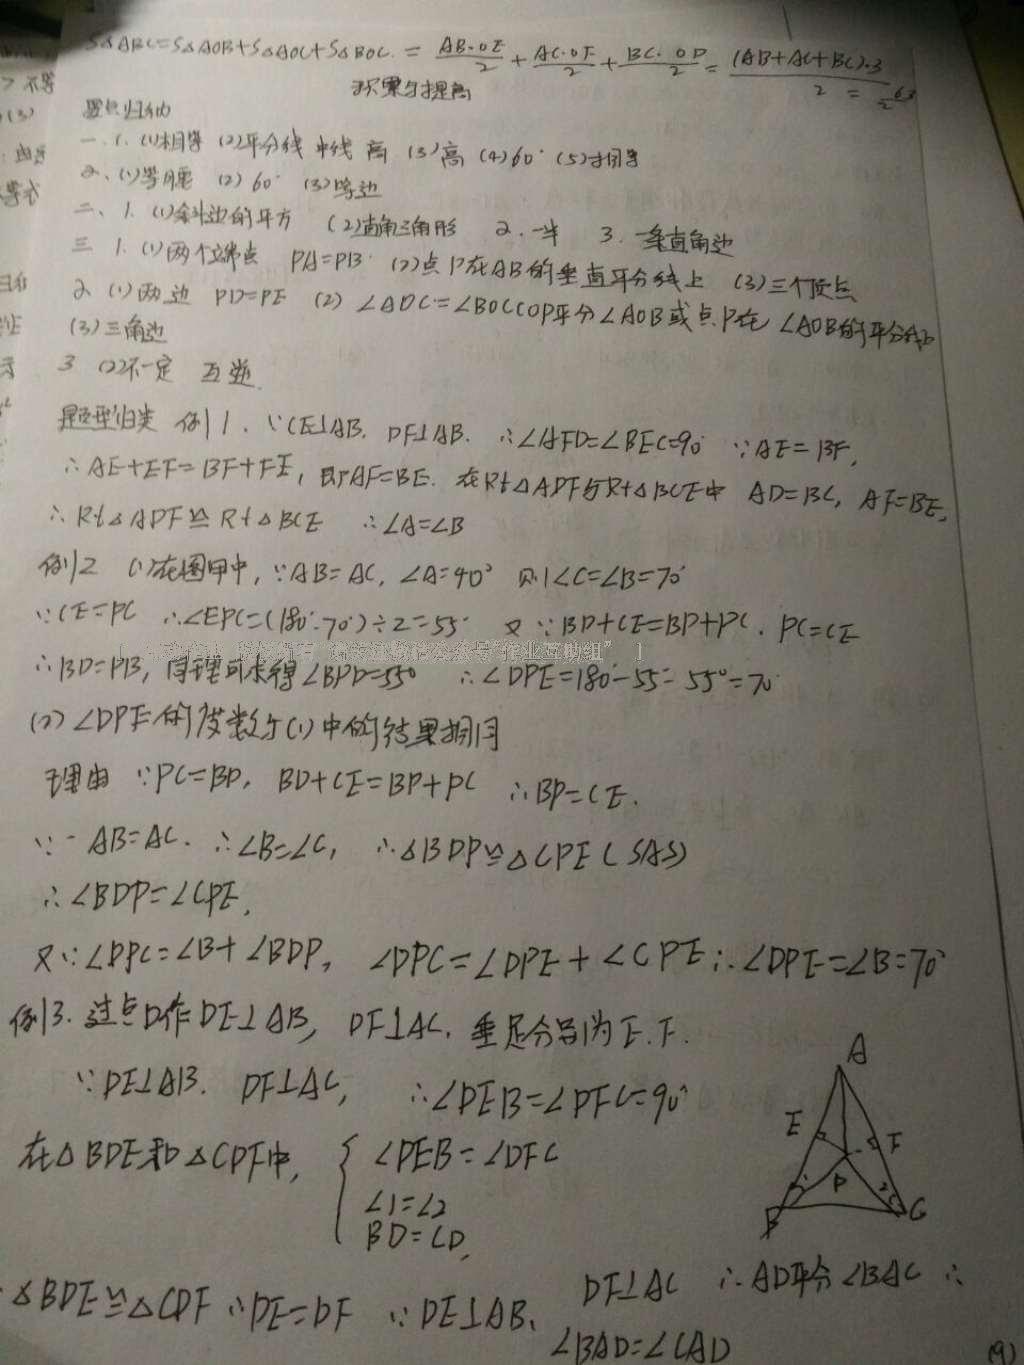 S△ABC=S△AOB+S△AOC+S△BOC = AB·OE/2 + AC·OF/2 + BC·OD/2 = (AB+AC+BC)·3/2 = 63/2
积累与提高
要点归纳
一、1. (1)相等 (2)平分线 中线 高 (3)高 (4)60° (5)
2、(1)等腰 (2)60° (3)等边
二、1. (1)斜边的平方 (2)直角三角形 2. 一半 3. 一条直角边
三 1. (1)两个端点 PA=PB (2)点P在AB的垂直平分线上 (3)三个顶点
2 (1)两边 PD=PE (2) ∠AOC=∠BOC(OP平分∠AOB或点P在∠AOB的平分线上
(3)三角边
3 (2)不一定 互逆.
题型归类 例1. ∵CE⊥AB. DF⊥AB. ∴∠AFD=∠BEC=90° ∵AE=BF,
∴AE+EF=BF+FE, 即AF=BE. 在Rt△ADF与Rt△BCE中 AD=BC, AF=BE,
∴Rt△ADF≌Rt△BCE ∴∠A=∠B
例2 (1)在图甲中, ∵AB=AC, ∠A=40° 则∠C=∠B=70°
∵CE=PC ∴∠EPC=(180°-70°)÷2=55° 又∵BD+CE=BP+PC. PC=CE
作业互助组" ]
∴BD=PB, 同理可求得∠BPD=55° ∴∠DPE=180°-55°-55°=70°
(2)∠DPE的度数与(1)中的结果相同
理由 ∵PC=BD, BD+CE=BP+PC ∴BP=CE.
∵ AB=AC. ∴∠B=∠C, ∴△BDP≌△CPE(SAS)
∴∠BDP=∠CPE,
又∵∠DPC=∠B+∠BDP, ∠DPC=∠DPE+∠CPE∴∠DPE=∠B=70°
例3. 过点D作DE⊥AB, DF⊥AC, 垂足分别为E.F.
∵DE⊥AB. DF⊥AC, ∴∠DEB=∠DFC=90°
在△BDE和△CDF中, { ∠DEB=∠DFC
∠1=∠2
BD=CD,
△BDE≌△CDF ∴DE=DF ∵DE⊥AB, DF⊥AC ∴AD平分∠BAC ∴
∠BAD=∠CAD
A
E
F
D
2
B
C
(9)